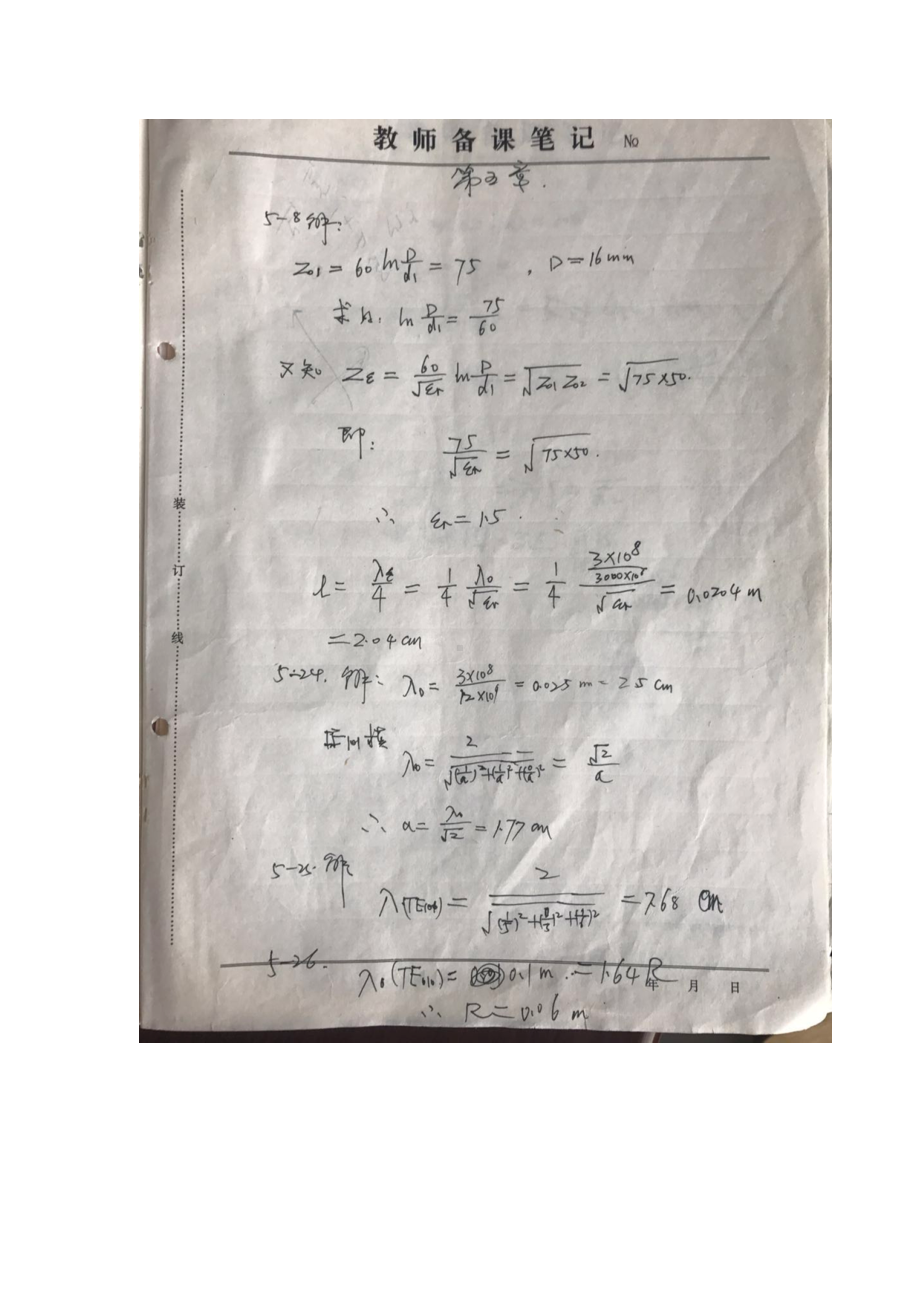 教师备课笔记 No
第五章.
5-8 解:
Z₀₁ = 60 ln D/d₁ = 75 , D = 16mm
求得: ln D/d₁ = 75/60
又知 Zε = 60/√εr ln D/d₁ = √(Z₀₁ Z₀₂) = √(75×50).
即: 75/√εr = √(75×50).
∴ εr = 1.5.
l = λε/4 = 1/4 λ₀/√εr = 1/4 (3×10⁸/3000×10⁶)/√εr = 0.0204 m
= 2.04 cm
5-24. 解: λ₀ = 3×10⁸/12×10⁹ = 0.025 m = 2.5 cm
λ₀ = 2/√((1/a)²+(1/a)²+(0/a)²) = √2/a
∴ a = λ₀/√2 = 1.77 cm
5-25. 解
λ(TE₁₀₁) = 2/√((1/5)²+(0/3)²+(1/6)²) = 7.68 cm
5-26.
λ₀(TE₀₁₀) = 0.1 m. = 1.64 R
年 月 日
∴ R = 0.06 m
装
订
线